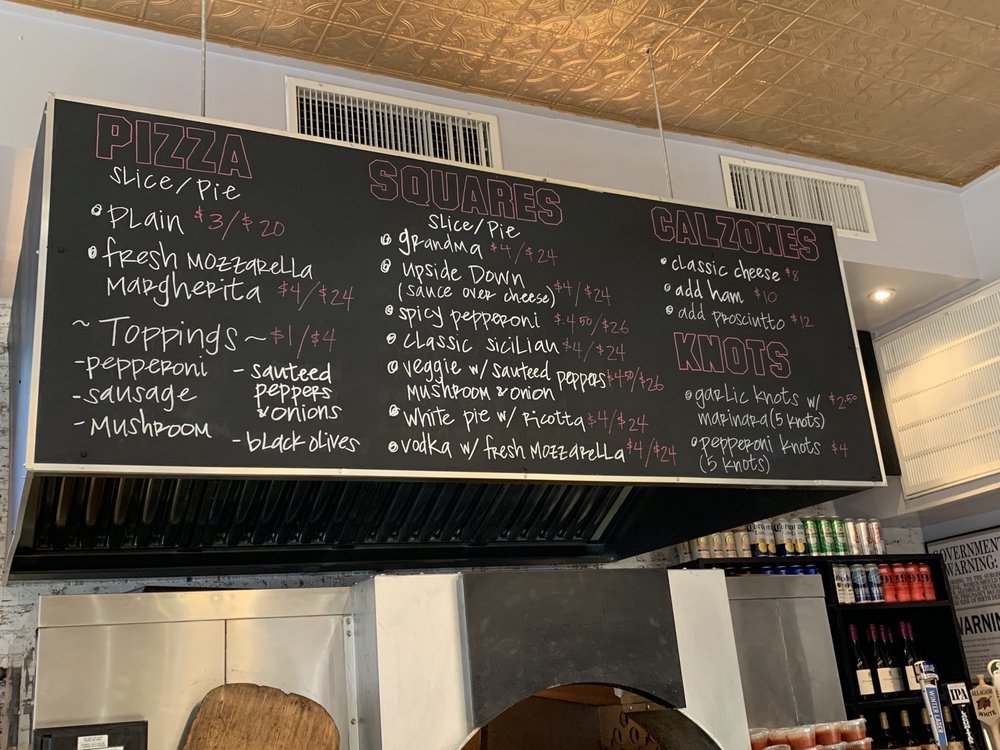 PIZZA
SLICE/PIE
PLAIN $3/$20
fresh MOZZARELLA
MARGHERITA $4/$24
~ Toppings ~ $1/$4
-pepperoni
-sausage
-MUSHROOM
- sauteed
peppers
& onions
- black olives
SQUARES
SLICE/PIE
GRANDMA $4/$24
UPSIDE DOWN
(SAUCE OVER CHEESE) $4/$24
SPICY PEPPERONI $4.50/$26
CLASSIC SICILIAN $4/$24
VEGGIE W/ SAUTEED PEPPERS $4.50/$26
MUSHROOM & ONION
WHITE PIE W/ RICOTTA $4/$24
VODKA W/ FRESH MOZZARELLA $4/$24
CALZONES
classic cheese $8
add ham $10
add prosciutto $12
KNOTS
garlic knots w/ $2.50
marinara (5 knots)
pepperoni knots $4
(5 knots)
GOVERNMENT
WARNING:
WARNIN
WINTER LAGER
IPA
ALLAGASH
WHITE